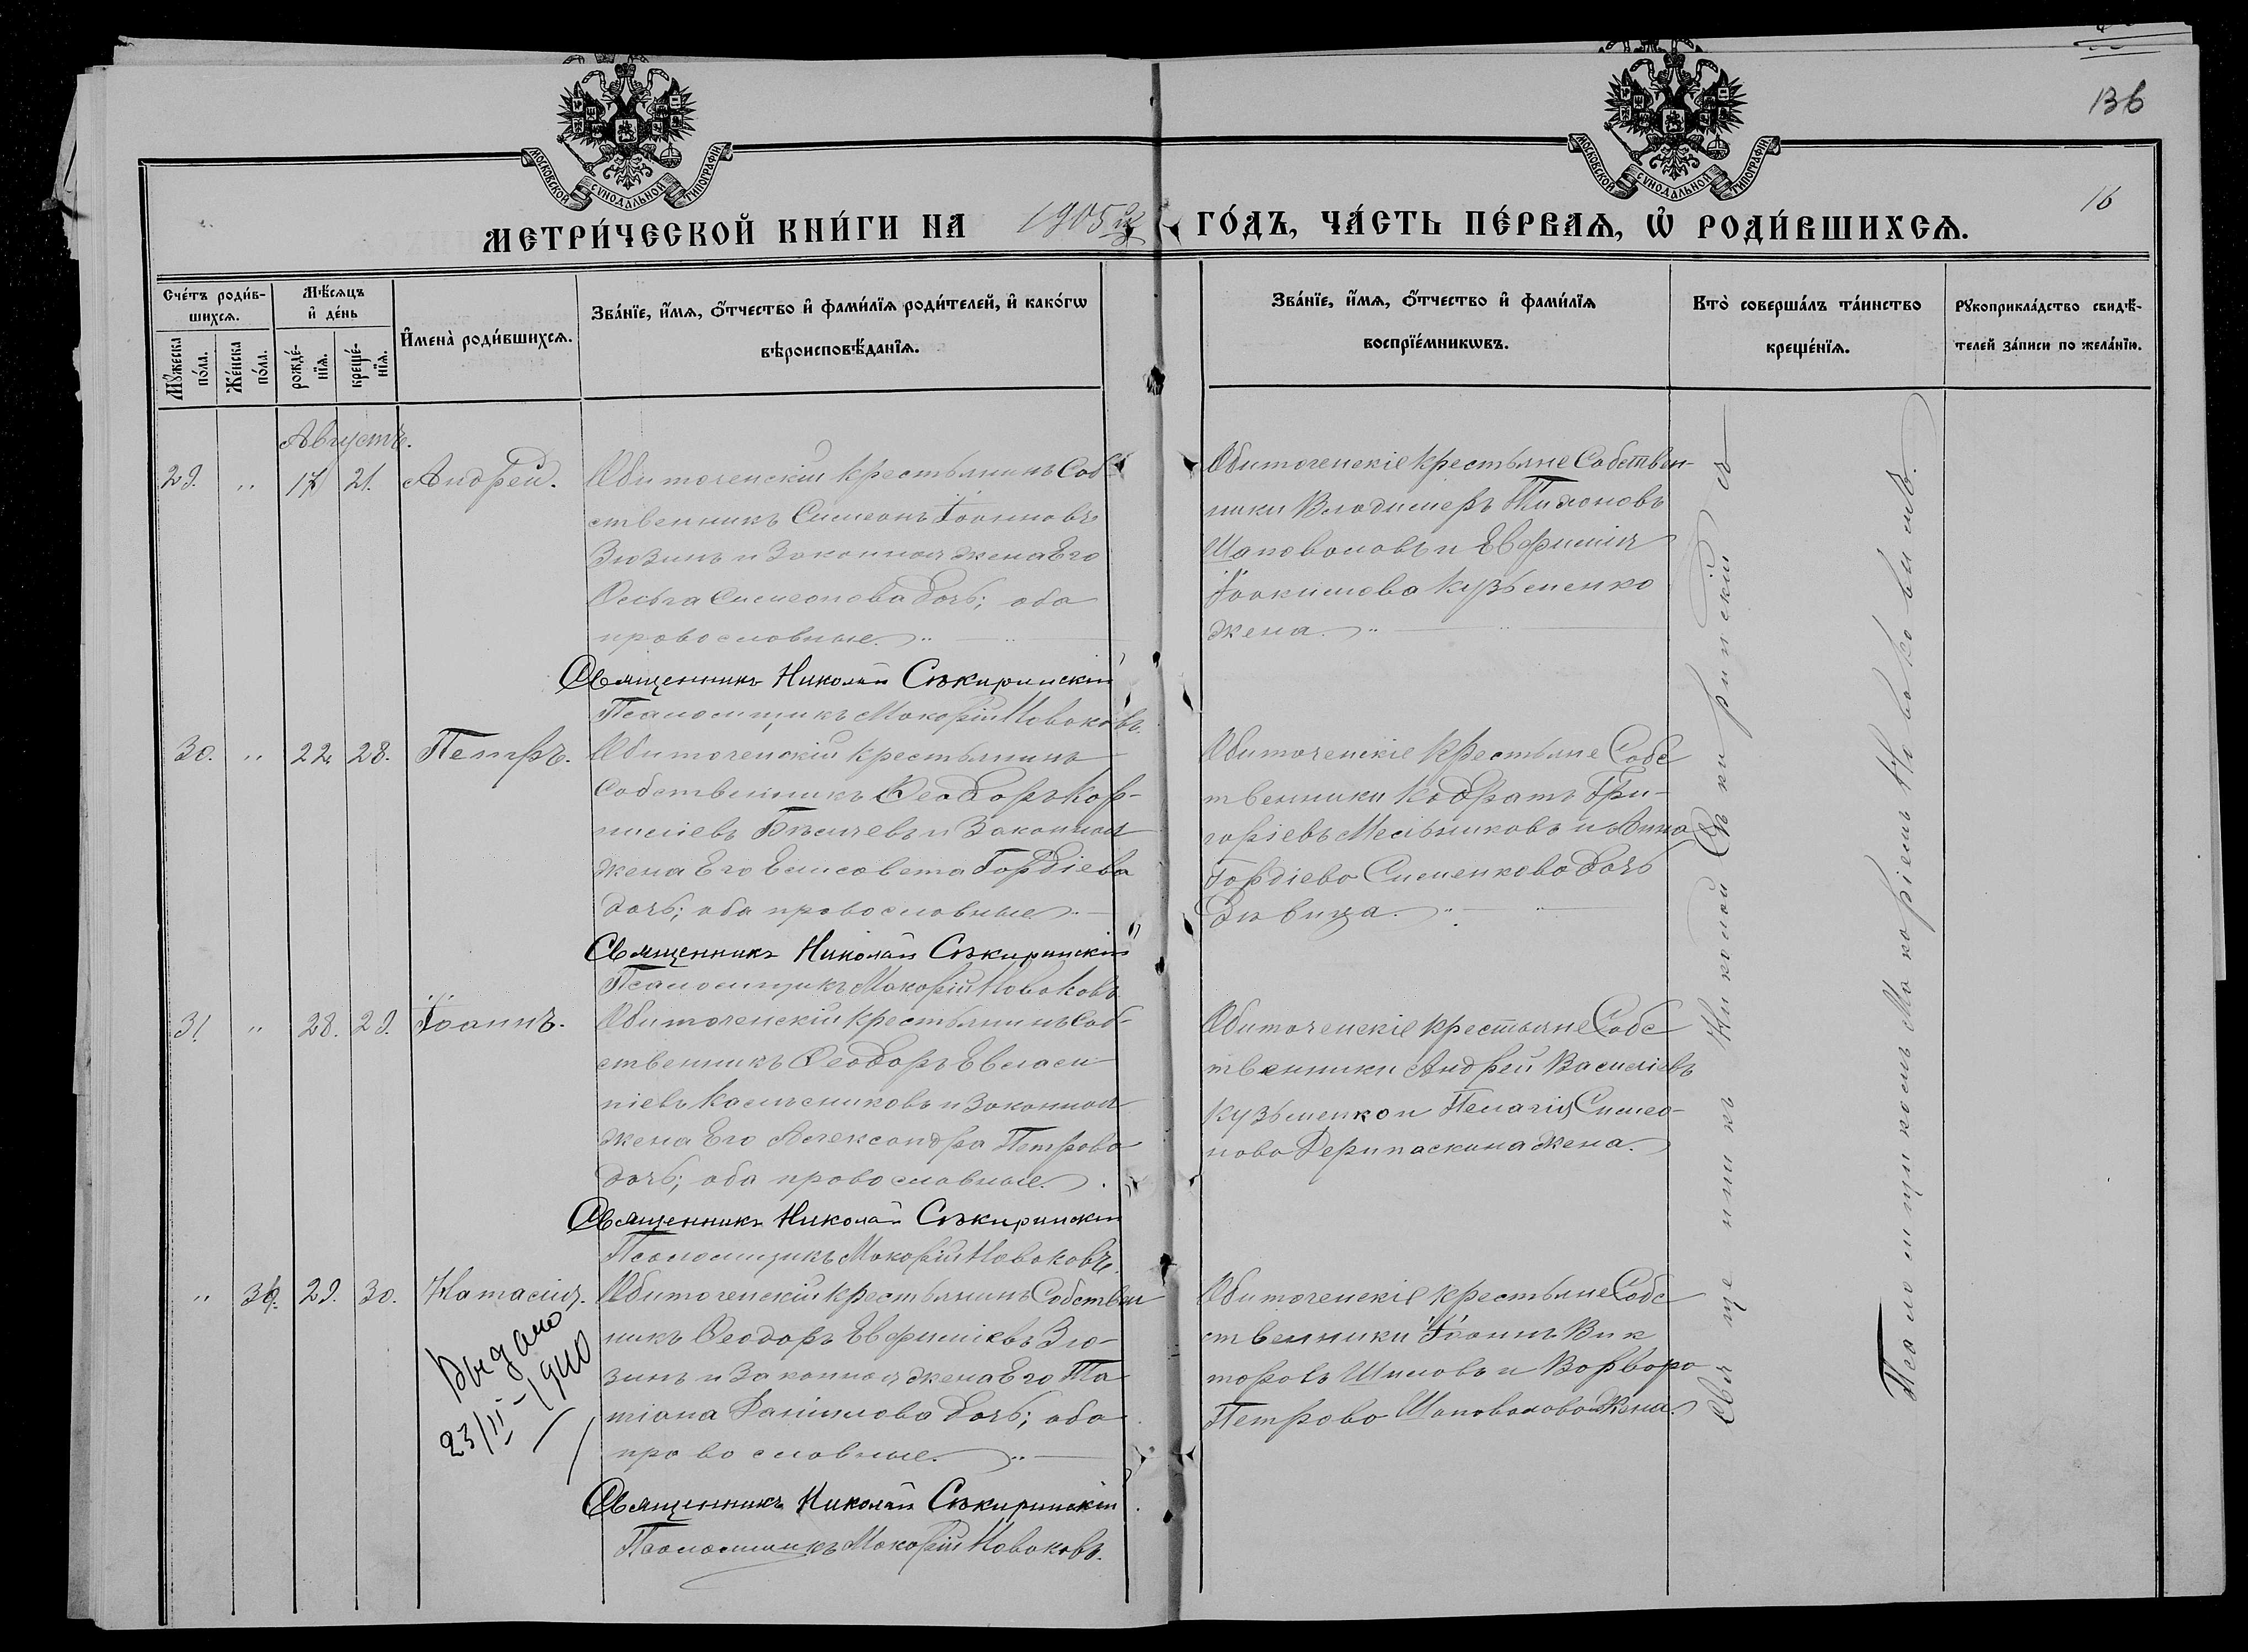 136
16
МОСКОВСКОЙ СѴНОДАЛЬНОЙ ТИПОГРАФІИ
МОСКОВСКОЙ СѴНОДАЛЬНОЙ ТИПОГРАФІИ
МЕТРИ́ЧЕСКОЙ КНИ́ГИ НА 1905й ГО́ДЪ, ЧА́СТЬ ПЕ́РВАѦ, Ѡ҆ РОДИ́ВШИХСѦ.
Сче́тъ роди́в-
шихсѧ.
Мꙋ́жеска по́ла.
Же́нска по́ла.
Мѣ́сѧцъ
и҆ де́нь
рожде́-
нїѧ.
креще́-
нїѧ.
И҆мена̀ роди́вшихсѧ.
Зва́нїе, и҆́мѧ, ѻ҆́тчество и҆ фами́лїѧ роди́телей, и҆ како́гѡ
вѣроисповѣ́данїѧ.
Зва́нїе, и҆́мѧ, ѻ҆́тчество и҆ фами́лїѧ
воспрїе́мникѡвъ.
Кто̀ соверша́лъ та́инство
креще́нїѧ.
Рꙋкоприкла́дство свидѣ́-
телей за́писи по жела́нїю.
Августъ.
29. " 17 21. Андрей.
Обиточенскій крестьянинъ Соб-
ственникъ Симеонъ Іоанновъ
Зюзинъ и Законная жена Его
Ольга Симеонова дочь; оба
православные.
Священникъ Николай Сѣкиринскій
Псаломщикъ Макарій Новаковъ.
Обиточенскіе крестьяне Собствен-
ники Владимеръ Тихоновъ
Шаповаловъ и Евфимія
Іоакимова Кузьменко
жена.
30. " 22. 28. Петръ.
Обиточенскій крестьянинъ
Собственникъ Ѳеодоръ Кор-
ниліевъ Бѣличевъ и Законная
жена Его Елисавета Гордіева
дочь; оба православные
Священникъ Николай Сѣкиринскій
Псаломщикъ Макарій Новаковъ
Обиточенскіе крестьяне Собс
твенники Кодратъ Гри-
горіевъ Мельниковъ и Анна
Гордіева Сименкова дочь
дѣвица.
31 " 28. 29. Іоаннъ.
Обиточенскій крестьянинъ Соб-
ственникъ Ѳеодоръ Евлам
піевъ Калѣсниковъ и Законная
жена Его Александра Петрова
дочь; оба православные.
Священникъ Николай Сѣкиринскій
Псаломщикъ Макарій Новаковъ.
Обиточенскіе крестьяне Собс
твенники Андрей Василіевъ
Кузьменко и Пелагія Симео-
нова Дерипаскина жена.
" 29. 30. Наталія.
Выдано
23/II-1940
Обиточенскій крестьянинъ Собствен
никъ Ѳеодоръ Евфиміевъ Зю-
зинъ и Законная жена Его Та
тіана Даніилова дочь; оба
православные.
Священникъ Николай Сѣкиринскій
Псаломщикъ Макарій Новаковъ.
Обиточенскіе крестьяне Собс
твенники Іоаннъ Вик
торовъ Шиловъ и Варвара
Петрова Шаповалова жена.
Священникъ Николай Сѣкиринскій съ
Псаломщикомъ Макаріемъ Новаковымъ.